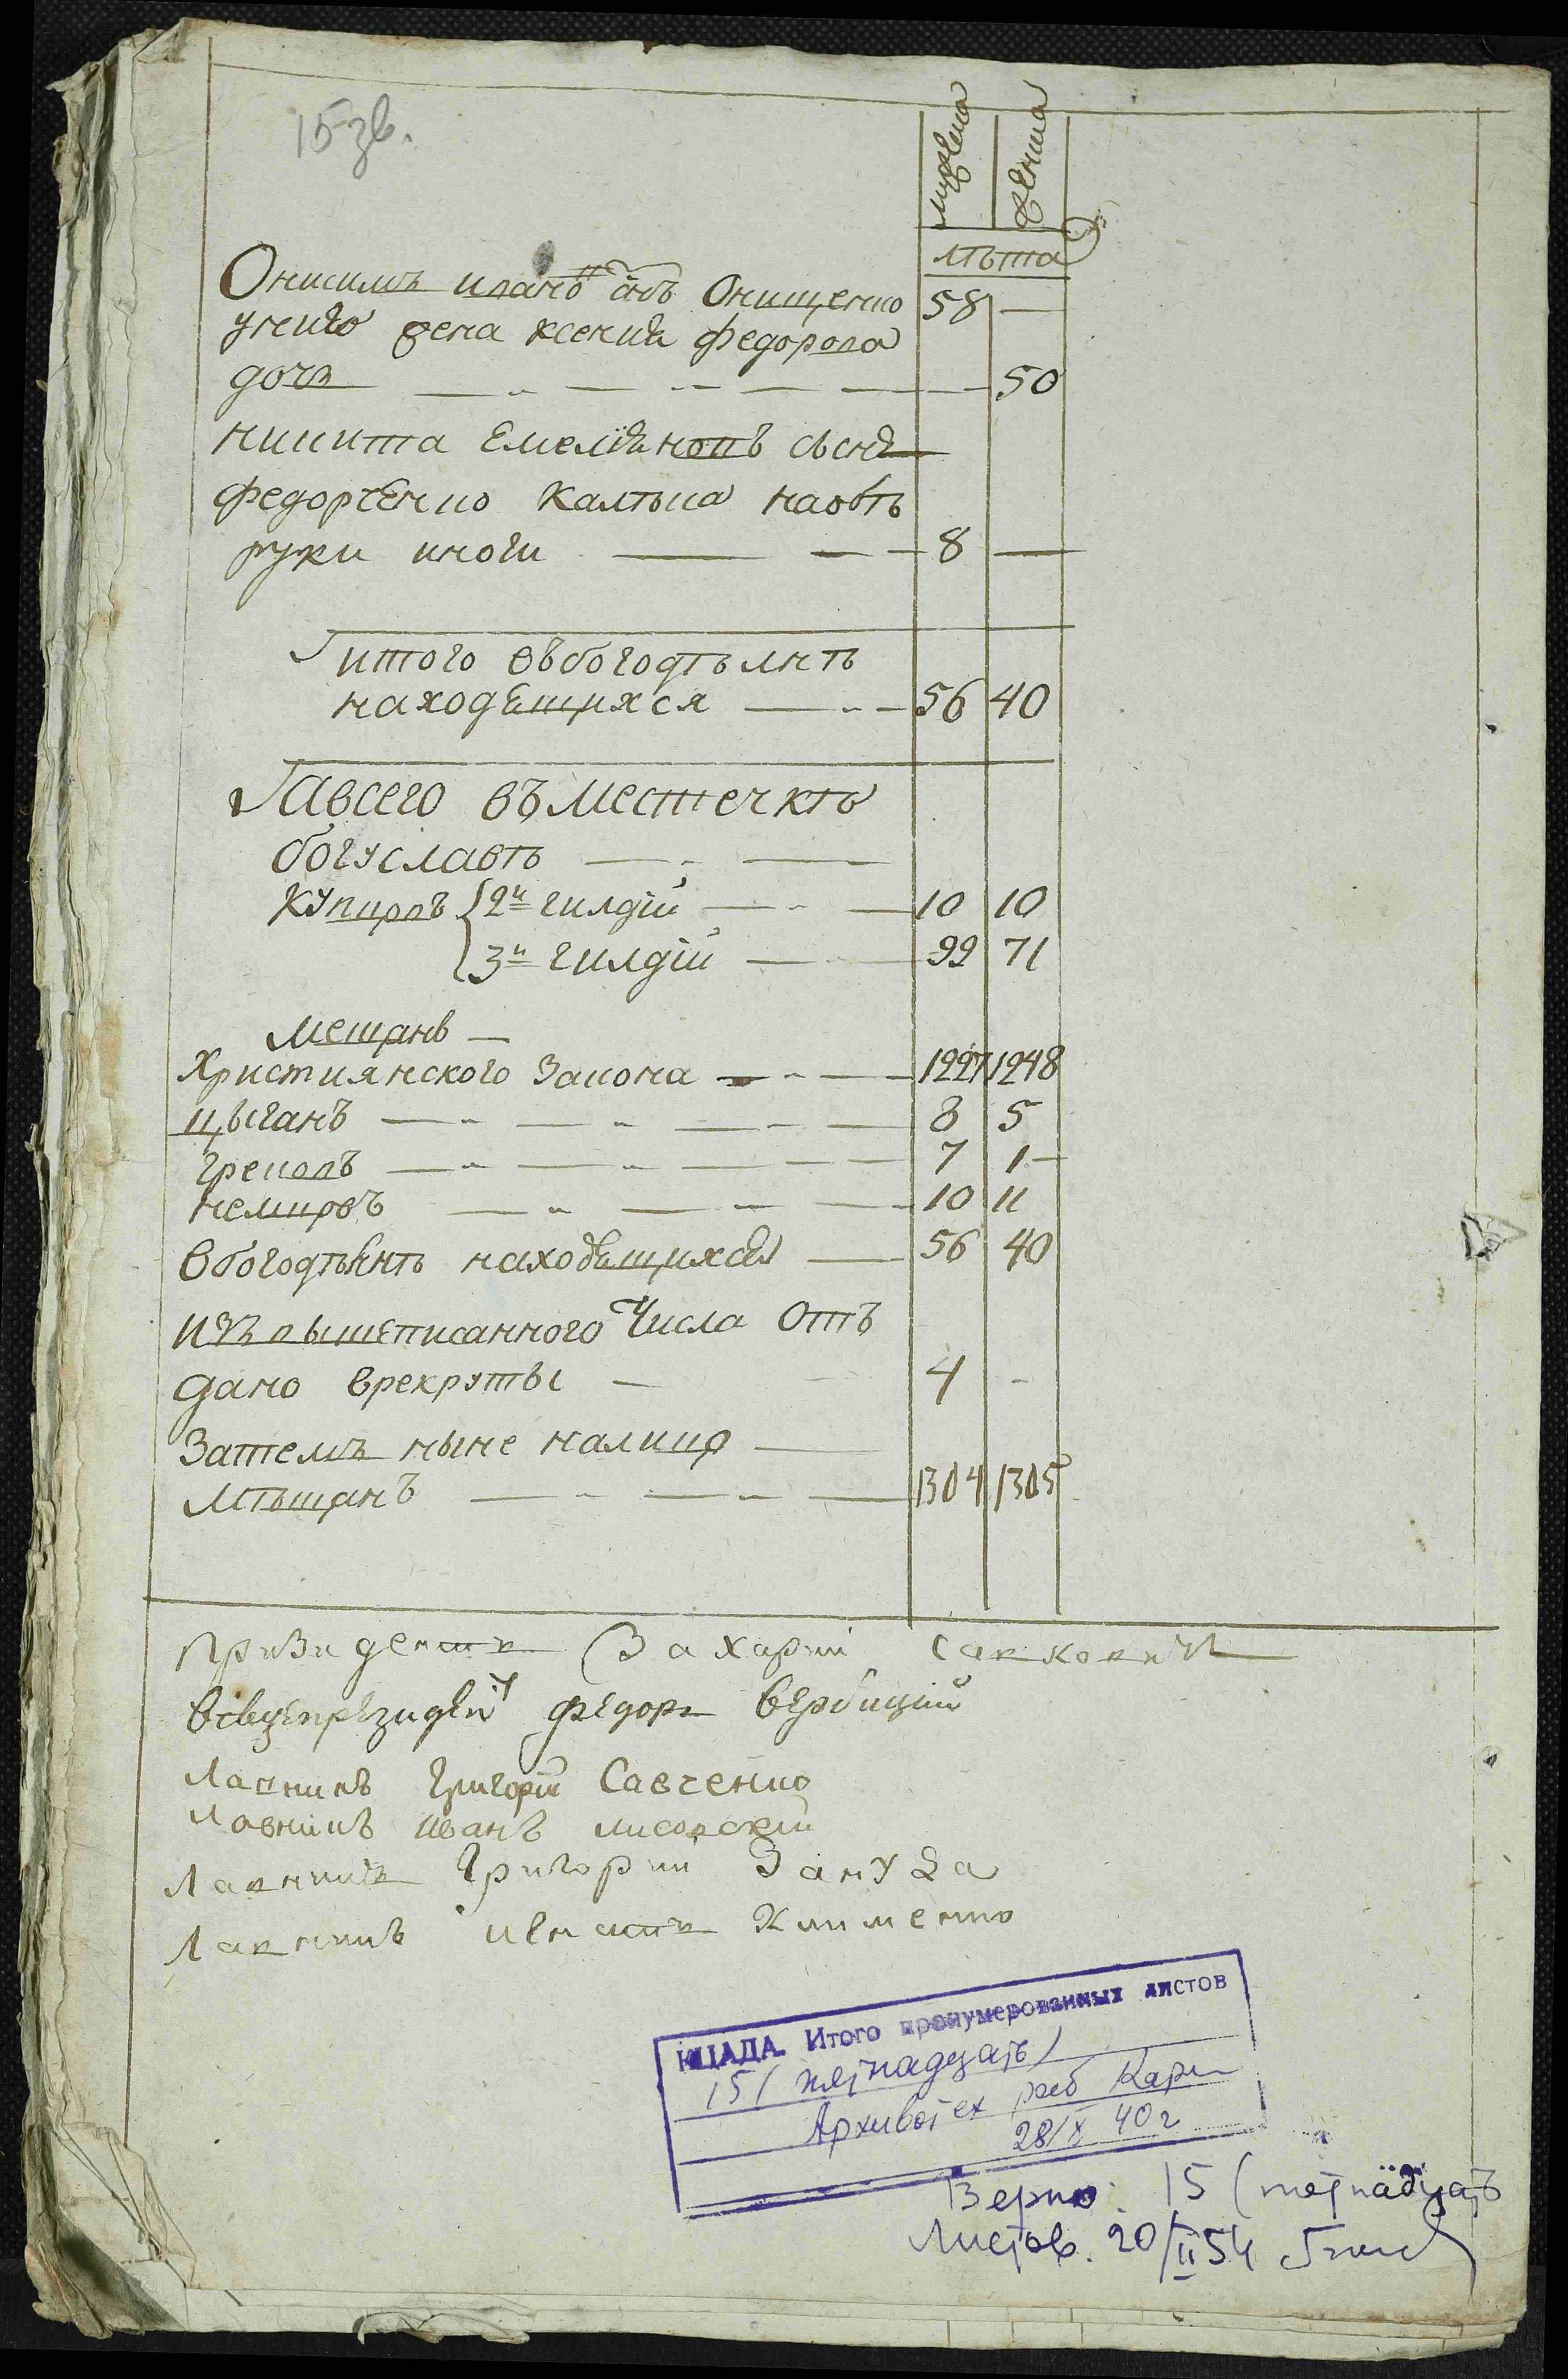 15 зв.
мужеска женска
лѣта
Онисимъ ивано снъ Онищенко 58 —
унего жена ксения федорова
дочь — 50
никита Емелияновъ сынъ
федорченко калѣка наобѣ
руки иноги — 8 —
итого въбогодѣлнѣ
находящихся — 56 40
Авсего въместечкѣ
богуславѣ —
купцовъ 2й гилдіи — 10 10
3й гилдіи — 99 71
мещанъ —
Християнского закона — 1227 1248
цыганъ — 8 5
грековъ — 7 1
немцовъ — 10 11
вбогодѣлнѣ находящихся — 56 40
изъвышеписанного числа отъ
дано врекруты — 4 -
Затемъ ныне налицо —
мѣщанъ — 1304 1305
призидентъ Захарий Савковичъ
вицепрезидент федоръ вербицкий
Лавникъ григорій Савченко
Лавникъ иванъ лисовскій
Лавникъ григорий Зануда
Лавникъ игнатъ Клименко
КЦАДА. Итого пронумерованных листов
15 (пятнадцать)
Архивотех раб Карп
28/X 40 г
Верно: 15 (пятнадцать
листов. 20/II 54